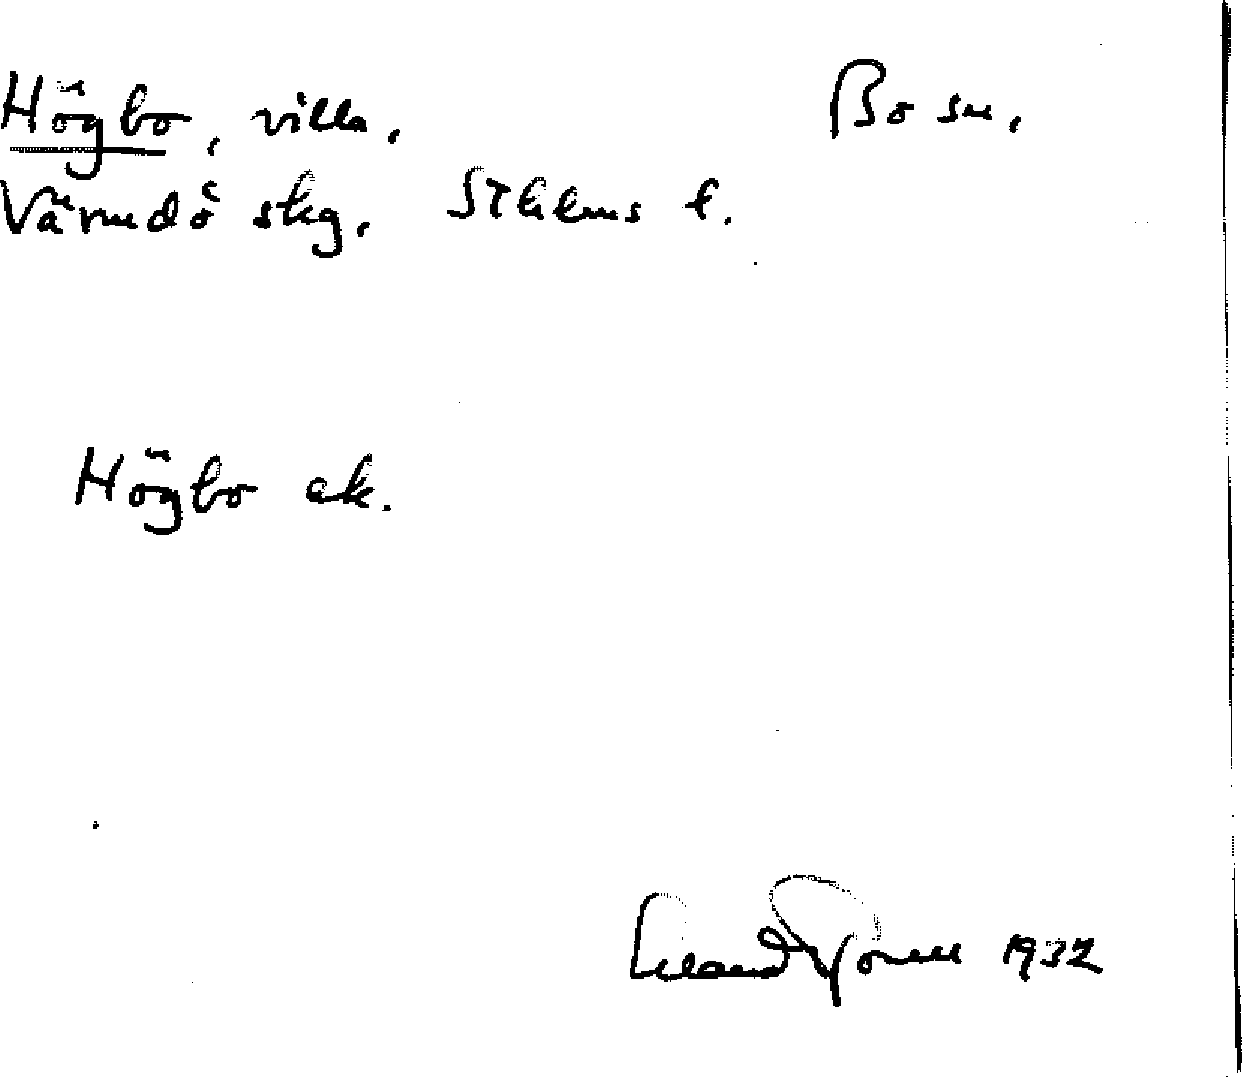 Högbo, villa. Bo sn.
Värmdö skg. Sthlms l.
Högbo ak.
1932